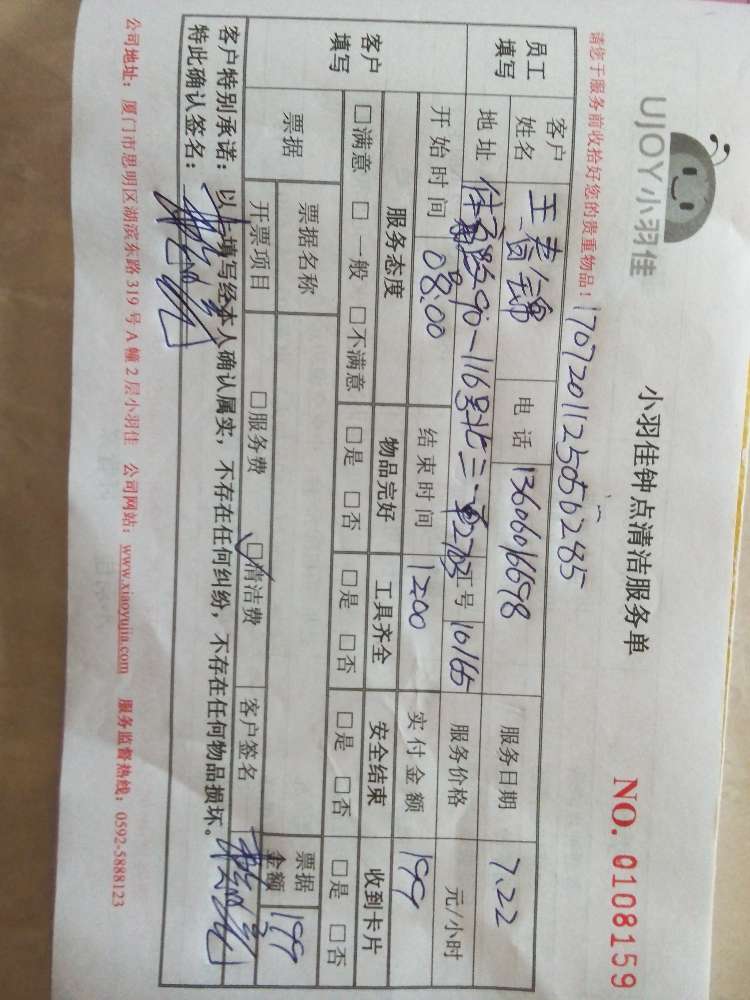 UJOY小羽佳
小羽佳钟点清洁服务单
NO. 0108159
请您于服务前收拾好您的贵重物品！
1707201125056285
员工填写 客户姓名 王 锦 电话 13606016698 服务日期 7.22
地址 佳 路90-116号北二 2703 工号 10165 服务价格 元/小时
开始时间 08:00 结束时间 1200 实付金额 199
客户填写 服务态度 物品完好 工具齐全 安全结束 收到卡片
□满意 □一般 □不满意 □是 □否 □是 □否 □是 □否 □是 □否
票据 票据名称 票据金额 199
开票项目 □服务费 □清洁费 客户签名
客户特别承诺：以上填写经本人确认属实，不存在任何纠纷，不存在任何物品损坏。
特此确认签名：
公司地址：厦门市思明区湖滨东路 319 号 A 幢 2 层小羽佳 公司网站：www.xiaoyujia.com 服务监督热线：0592-5888123